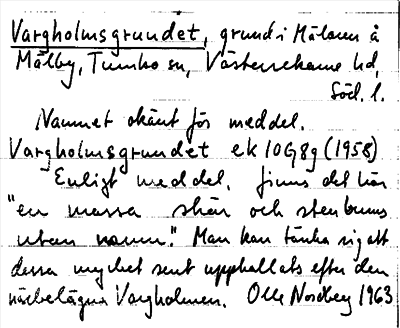 Vargholmsgrundet, grund i Mälaren å
Mälby, Tumbo sn, Västerrekarne hd,
Söd. l.
Namnet okänt för meddel.
Vargholmsgrundet ek 10G8g (1958)
Enligt meddel. finns det här
"en massa skär och stenbums
utan namn." Man kan tänka sig att
dessa mycket sent uppkallats efter den
närbelägna Vargholmen. Olle Nordberg 1963